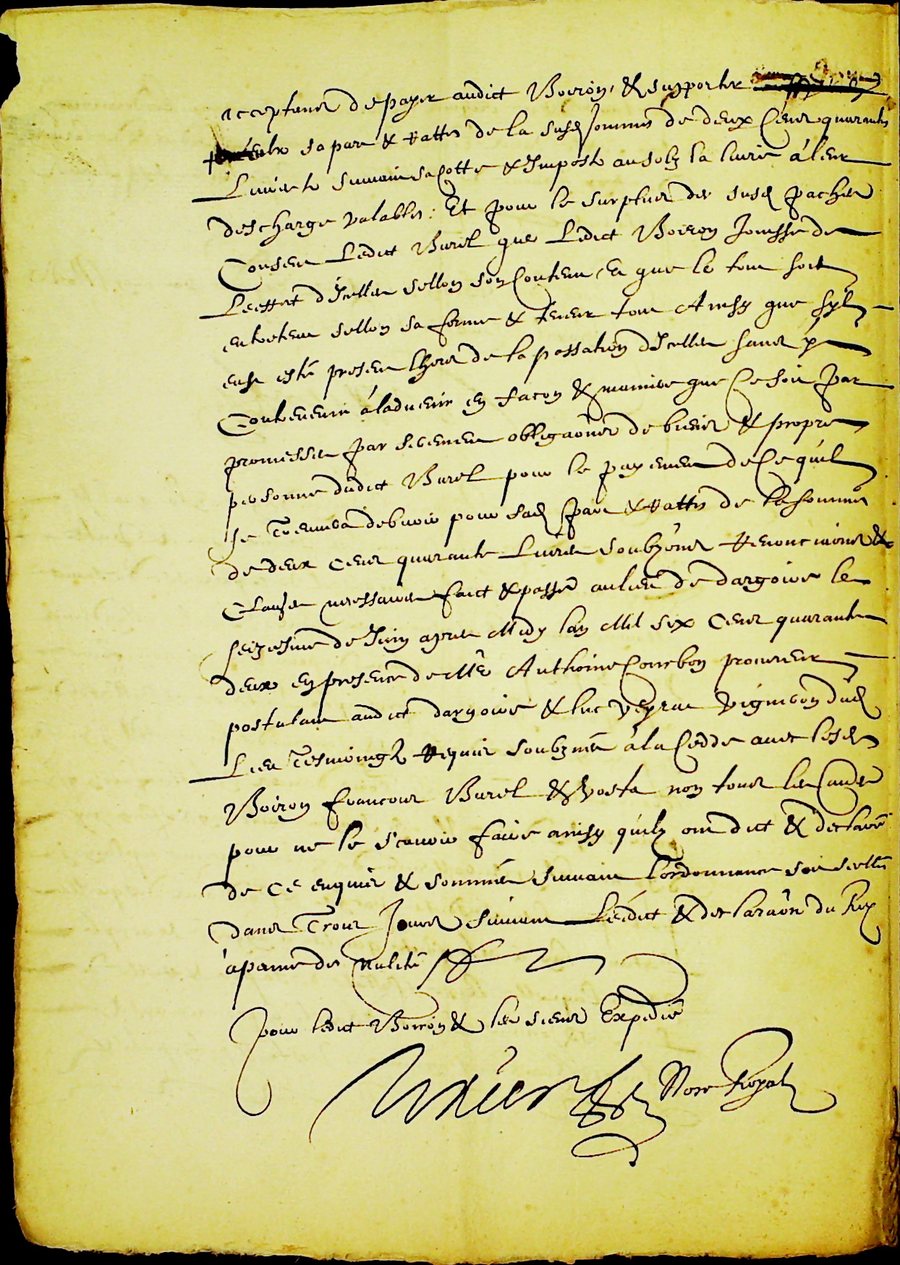 acceptant de payer audict Boiron, & supporter
sa part & rattes de la susd somme de deux Cens quarante
Livres suivant sa cotte & impost au solz la livre a leur
descharge vallables: Et pour le surplus des susd paches
Consent Ledict Burel que Ledict Boiron Jouisse de
Leffect dicelles sellon son Contenu Et que le tout soit
entretenu sellon sa forme & teneur tout Ainsy que sil
eust esté present lhors de la passation dicelles sans y
Contrevenir a ladvenir en facon & maniere que Ce soit par
promesses par serement obligaõns de biens & propre
personne dudict Burel pour le payement de Ce quil
se Treuvera debvoir pour sad part & rattes de la somme
de deux Cens quarante Livres soubz renonciaõns &
Clauses necessaires faict & passé au lieu de dargoire le
seiziesme de Juin apres Midy lan Mil six Cens quarante
deux en presence de Me Anthoine Courbon procureur
postulant audict dargoire & luc Veyrat vigneron dud
Lieu Tesmoingz requis soubznés a la Cedde avec lesd
Boiron francours Burel & non tous les
pour ne le scavoir faire ainsy quilz ont dict & declaré
de Ce enquis & sommés suivant lordonnance soit scellé
dans Trois Jours suivant Lédict & declaraõn du Roy
a paine de nulité
pour ledict Boiron & les siens Expedié
Nore Royal